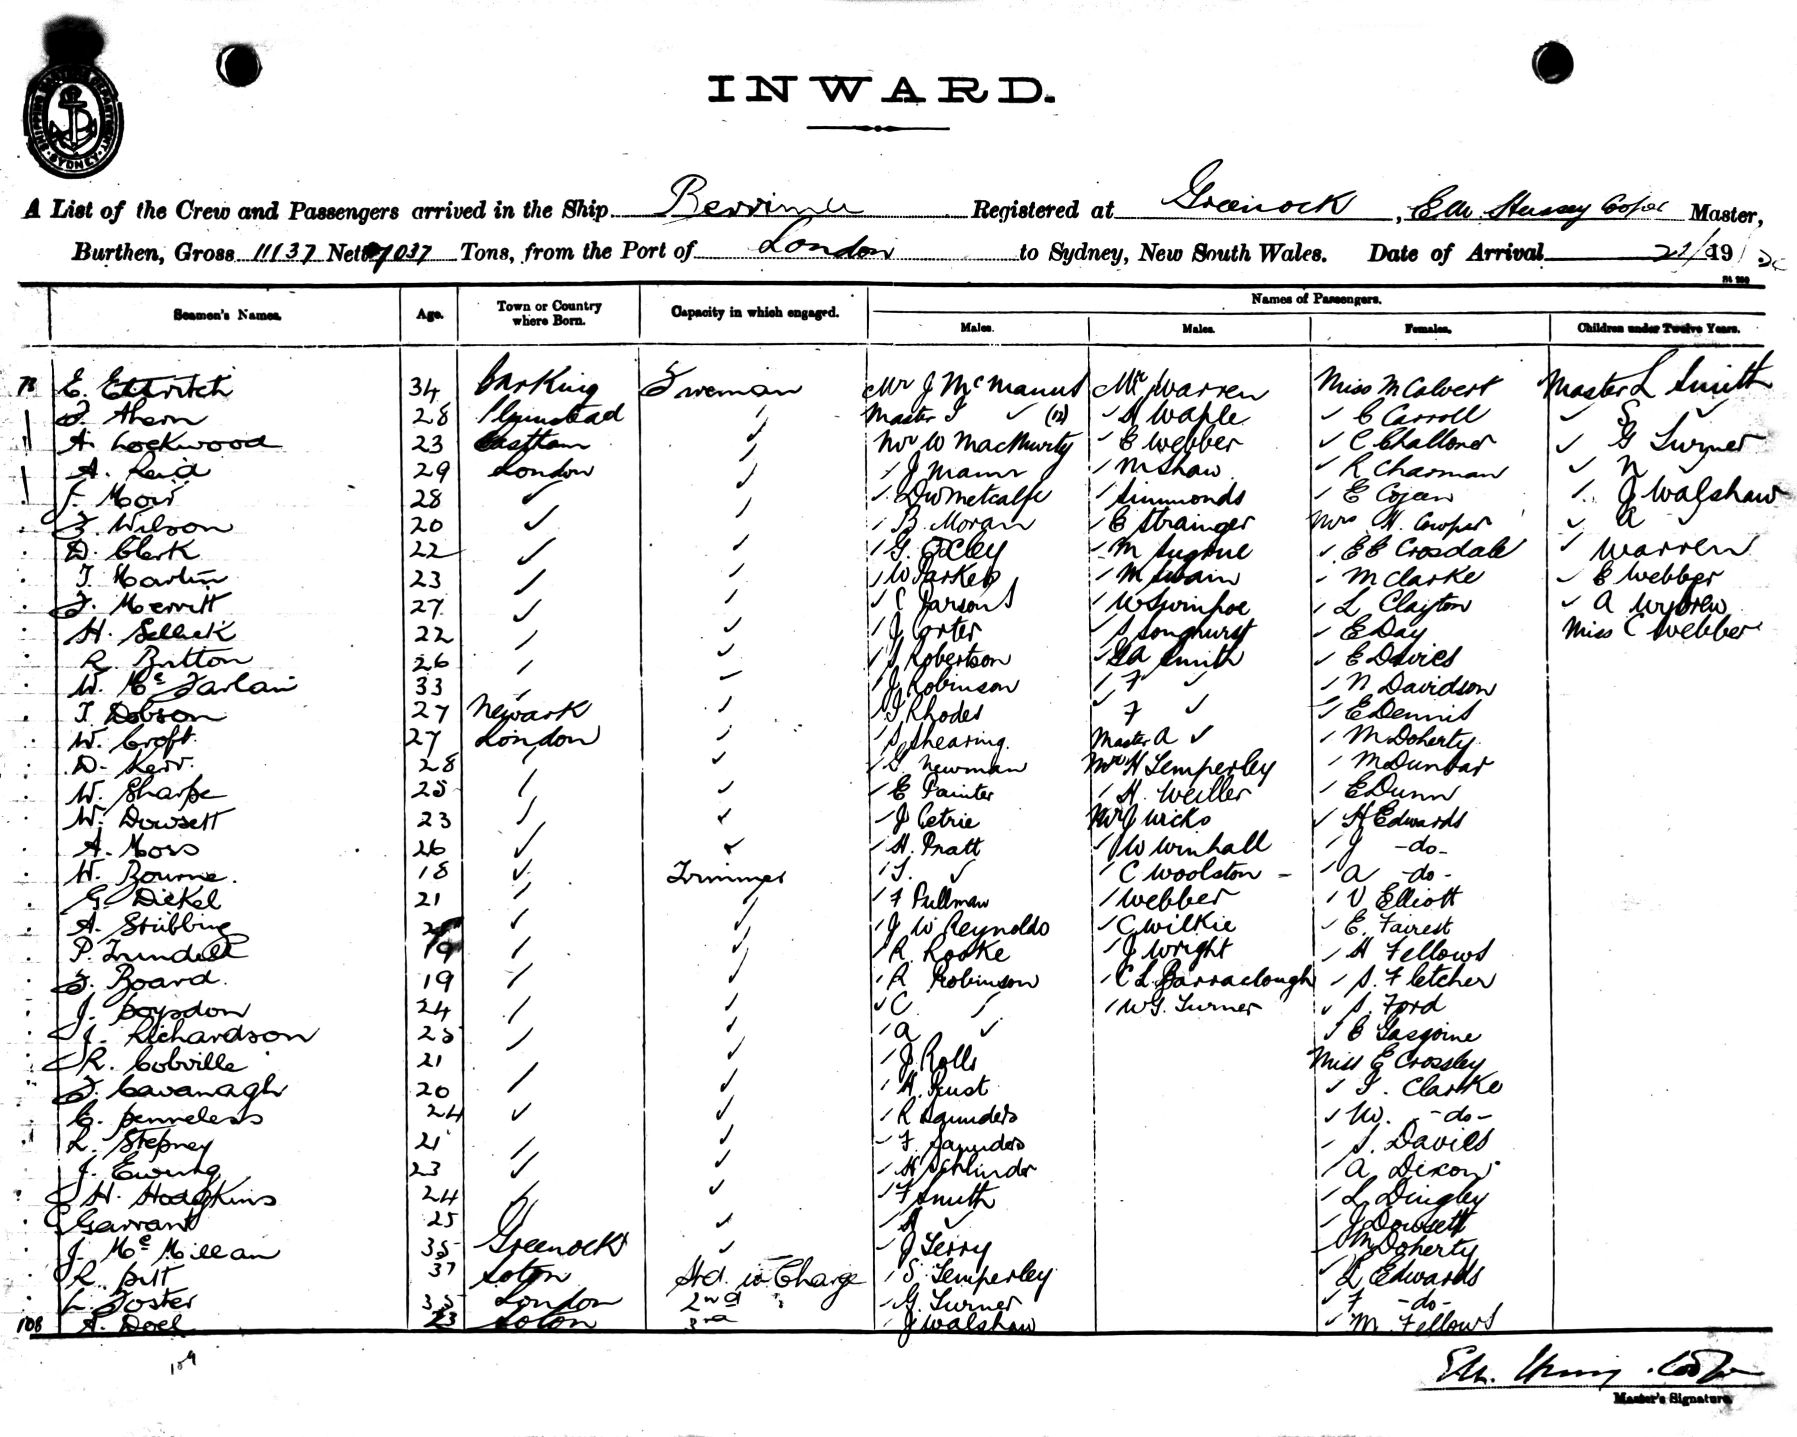 SHIPPING MASTER'S DEPARTMENT · SYDNEY ·
INWARD.
A List of the Crew and Passengers arrived in the Ship Berrima Registered at Greenock, Master,
Burthen, Gross 11137 Nett 7037 Tons, from the Port of London to Sydney, New South Wales. Date of Arrival 19
Seamen's Names. Age. Town or Country where Born. Capacity in which engaged. Names of Passengers.
Males. Males. Females. Children under Twelve Years.
73 E. Ettritch 34 Barking Fireman Mr J McManus Mr Warren Miss M Calvert Master L Smith
F. Ahern 28 Plumstead ✓ Master J ✓ (12) ✓ A Waple ✓ C Carroll ✓ S ✓
A. Lockwood 23 Eastham ✓ Mr W MacMurty ✓ E Webber ✓ C Challoner ✓ G Turner
A. Reid 29 London ✓ ✓ J Mann ✓ M Shaw ✓ R Charman ✓ N ✓
28 ✓ ✓ ✓ D W Metcalfe ✓ Simmonds ✓ E ✓ J Walshaw
F. Wilson 20 ✓ ✓ ✓ B. Moran ✓ E Strainger Mrs H. Cowper ✓ A ✓
D. Clerk 22 ✓ ✓ ✓ G. Exley ✓ M ✓ E E Crosdale ✓ Warren
T. Martin 23 ✓ ✓ ✓ W Parker ✓ M Swain ✓ M Clarke ✓ E Webber
F. Merritt 27 ✓ ✓ ✓ C Parsons ✓ W Swinhoe ✓ L Clayton ✓ A Wybrew
H. Selleck 22 ✓ ✓ ✓ J Porter ✓ S Songhurst ✓ E Day Miss C Webber
R. Britton 26 ✓ ✓ ✓ J Robertson ✓ Smith ✓ E Davies
W. McFarlan 33 ✓ ✓ ✓ J Robinson ✓ F ✓ ✓ N Davidson
T. Dobson 27 Newark ✓ ✓ J Rhodes ✓ F ✓ ✓ E Dennis
W. Croft 27 London ✓ ✓ S Shearing Master A ✓ ✓ M Doherty
D. Kerr 28 ✓ ✓ ✓ S. Newman Mr H Temperley ✓ M Dunbar
W. Sharpe 28 ✓ ✓ ✓ E Painter ✓ H. Weiller ✓ E Dunn
W. Dowsett 23 ✓ ✓ ✓ J Petrie Mr J Wicks ✓ H Edwards
A. Moss 26 ✓ ✓ ✓ H. Pratt ✓ W Winhall ✓ J -do-
W. Bourne. 18 ✓ Trimmer ✓ S. ✓ ✓ C Woolston - ✓ A -do-
G. Dickel 21 ✓ ✓ ✓ F Pullman ✓ Webber ✓ V Elliott
A. Stubbing ✓ ✓ ✓ J W Reynolds ✓ C Wilkie ✓ E. Fairest
P. Trundell 19 ✓ ✓ ✓ R Rooke ✓ J Wright ✓ H Fellows
F. Board. 19 ✓ ✓ ✓ R Robinson ✓ C L Barraclough ✓ S. Fletcher
J. Poysdon 24 ✓ ✓ ✓ C ✓ ✓ W G. Turner ✓ S. Ford
J. Richardson 25 ✓ ✓ ✓ A ✓ ✓ E Gasgoine
R. Colville 21 ✓ ✓ J Rolls Miss E Crossley
F. Cavanagh 20 ✓ ✓ ✓ H. Rust ✓ I. Clarke
C. Penneless 24 ✓ ✓ ✓ R Saunders ✓ W. -do-
L. Stepney 21 ✓ ✓ ✓ F. Saunders ✓ S. Davies
J. Ewing 23 ✓ ✓ ✓ H Schlinder ✓ A Dixon
H. Hodgkins 24 ✓ ✓ ✓ F Smith ✓ L Dingley
C Garrant 25 ✓ ✓ ✓ A ✓ ✓ J Dowsett
J. McMillan 35 Greenock ✓ ✓ J Terry ✓ M Doherty
R. Pitt 37 Soton Std in Charge ✓ S. Temperley ✓ L Edwards
L Foster 35 London 2nd " ✓ G. Turner ✓ F -do-
108 A. Doel 23 Soton 3rd ✓ J Walshaw ✓ M. Fellows
109
Master's Signature.